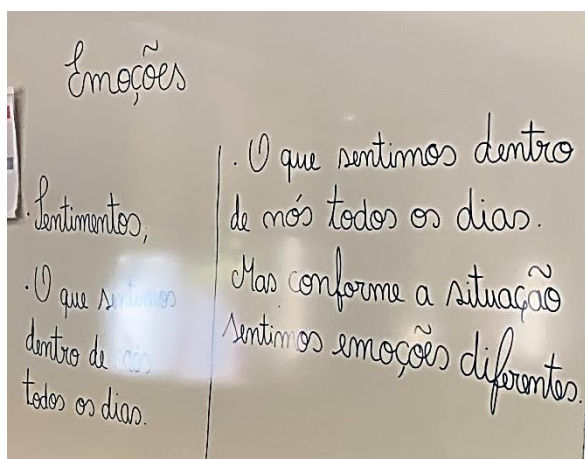 Emoções
. Sentimentos,
. O que sentimos
dentro de nós
todos os dias.
. O que sentimos dentro
de nós todos os dias.
Mas conforme a situação
sentimos emoções diferentes.